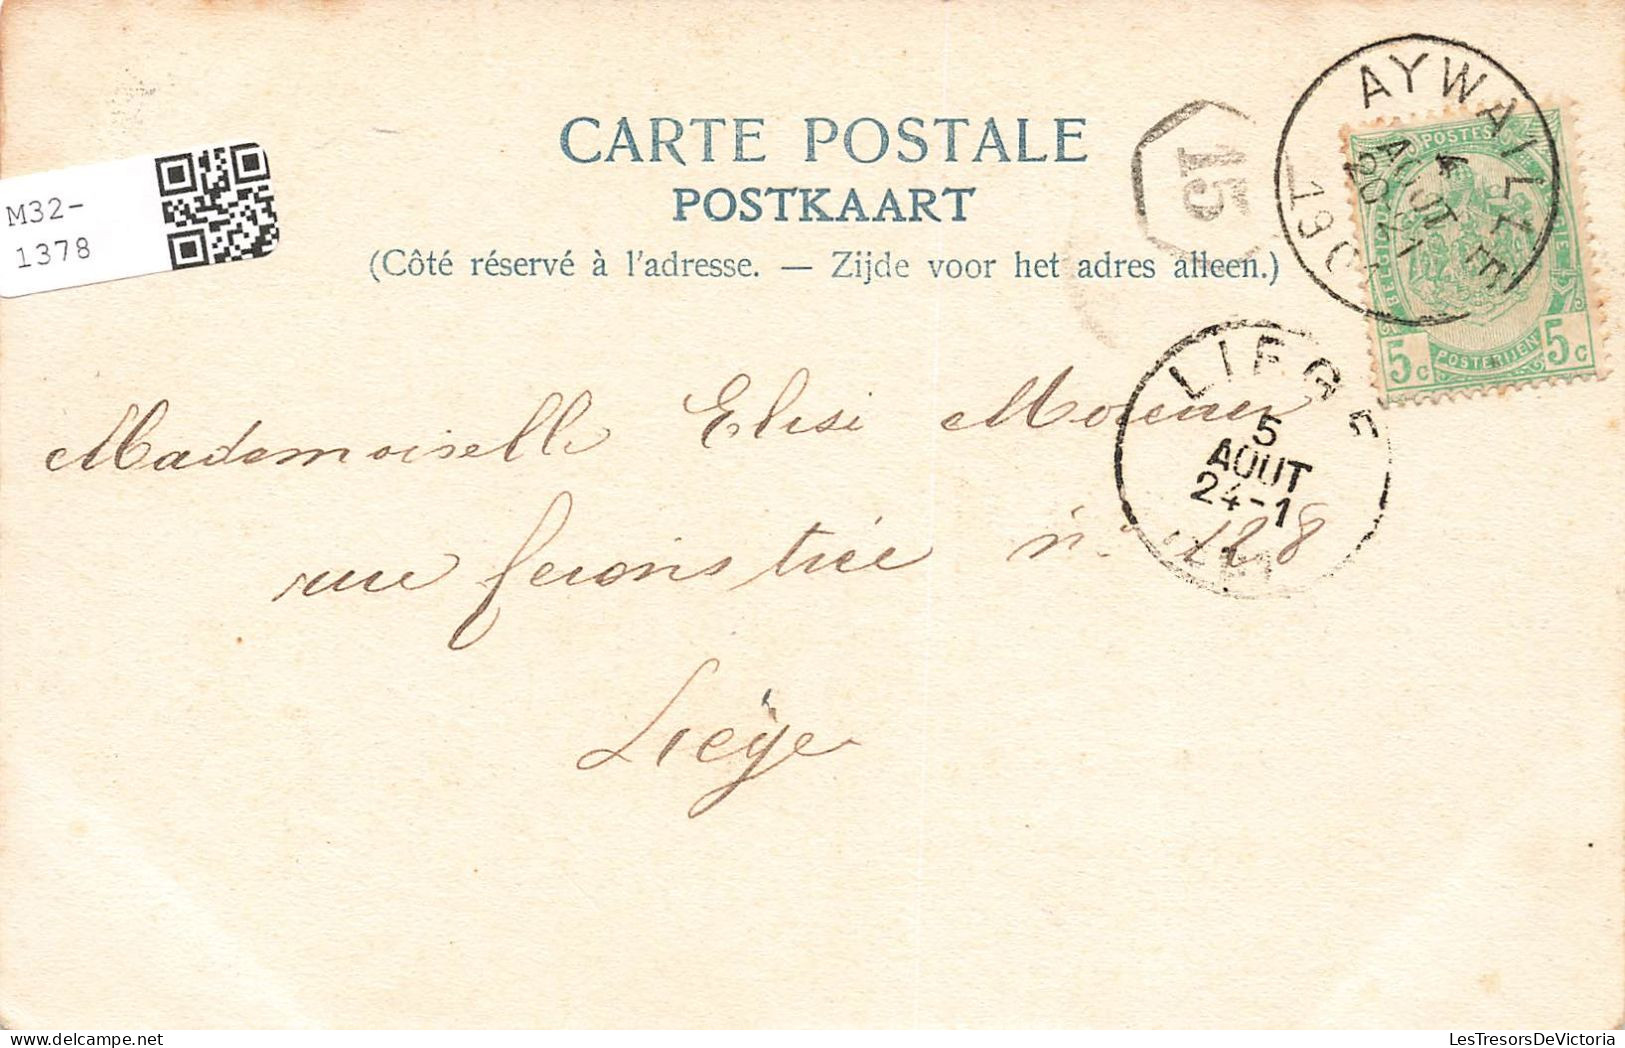 CARTE POSTALE
POSTKAART
(Côté réservé à l'adresse. — Zijde voor het adres alleen.)
M32-
1378
15
AYWAILLE
4
AOUT
20-21
1901
POSTES
BELGIQUE BELGIE
5c 5c
POSTERIJEN
LIEGE
5
AOUT
24-1
Mademoiselle Elisi
rue feronstrée n° 128
Liége
LesTresorsDeVictoria